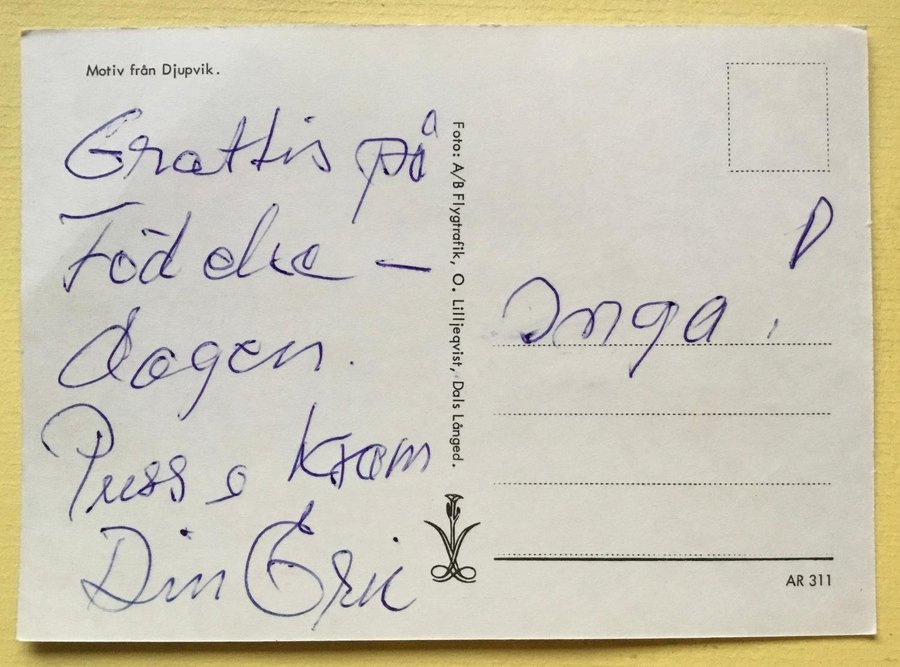 Motiv från Djupvik.
Grattis på
Födelse-
dagen.
Puss o Kram
Din Eric
Foto: A/B Flygtrafik, O. Lilljeqvist, Dals Långed.
Inga!
AR 311